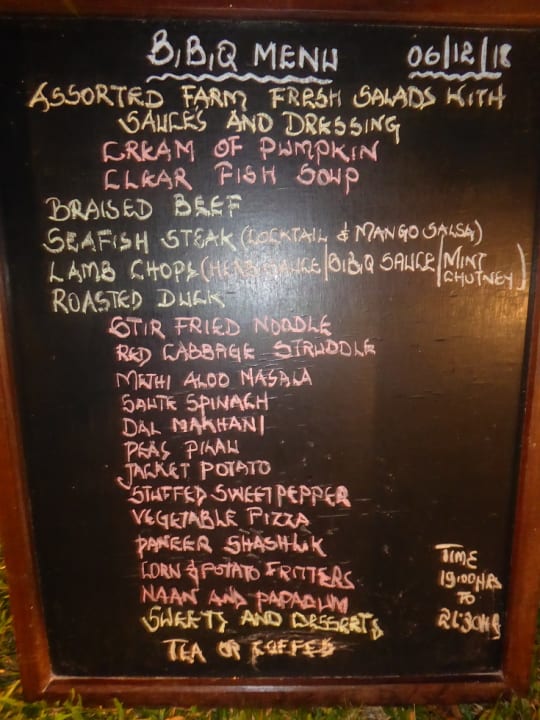 B,B,Q MENU 06/12/18
ASSORTED FARM FRESH SALADS WITH
SAUCES AND DRESSING
CREAM OF PUMPKIN
CLEAR FISH SOUP
BRAISED BEEF
SEAFISH STEAK (COCKTAIL & MANGO SALSA)
LAMB CHOPS (HERB SAUCE/B,B,Q SAUCE/MINT CHUTNEY)
ROASTED DUCK
STIR FRIED NOODLE
RED CABBAGE STRUDDLE
METHI ALOO MASALA
SAUTE SPINACH
DAL MAKHANI
PEAS PILAU
JACKET POTATO
STUFFED SWEET PEPPER
VEGETABLE PIZZA
PANEER SHASHLIK
CORN & POTATO FRITTERS
NAAN AND PAPADUM
SWEETS AND DESSERTS
TEA OR COFFEE
TIME
19:00HRS
TO
21:30HRS